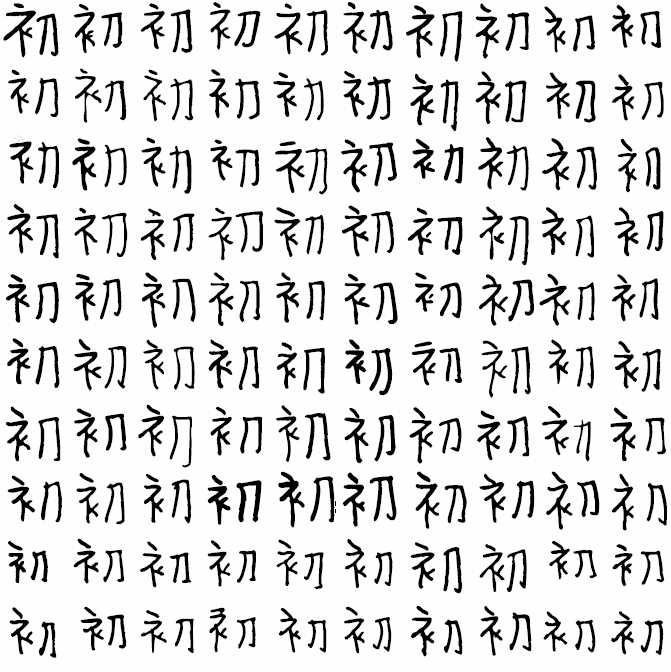 初初初初初初初初初初
初初初初初初初初初初
初初初初初初初初初初
初初初初初初初初初初
初初初初初初初初初初
初初初初初初初初初初
初初初初初初初初初初
初初初初初初初初初初
初初初初初初初初初初
初初初初初初初初初初